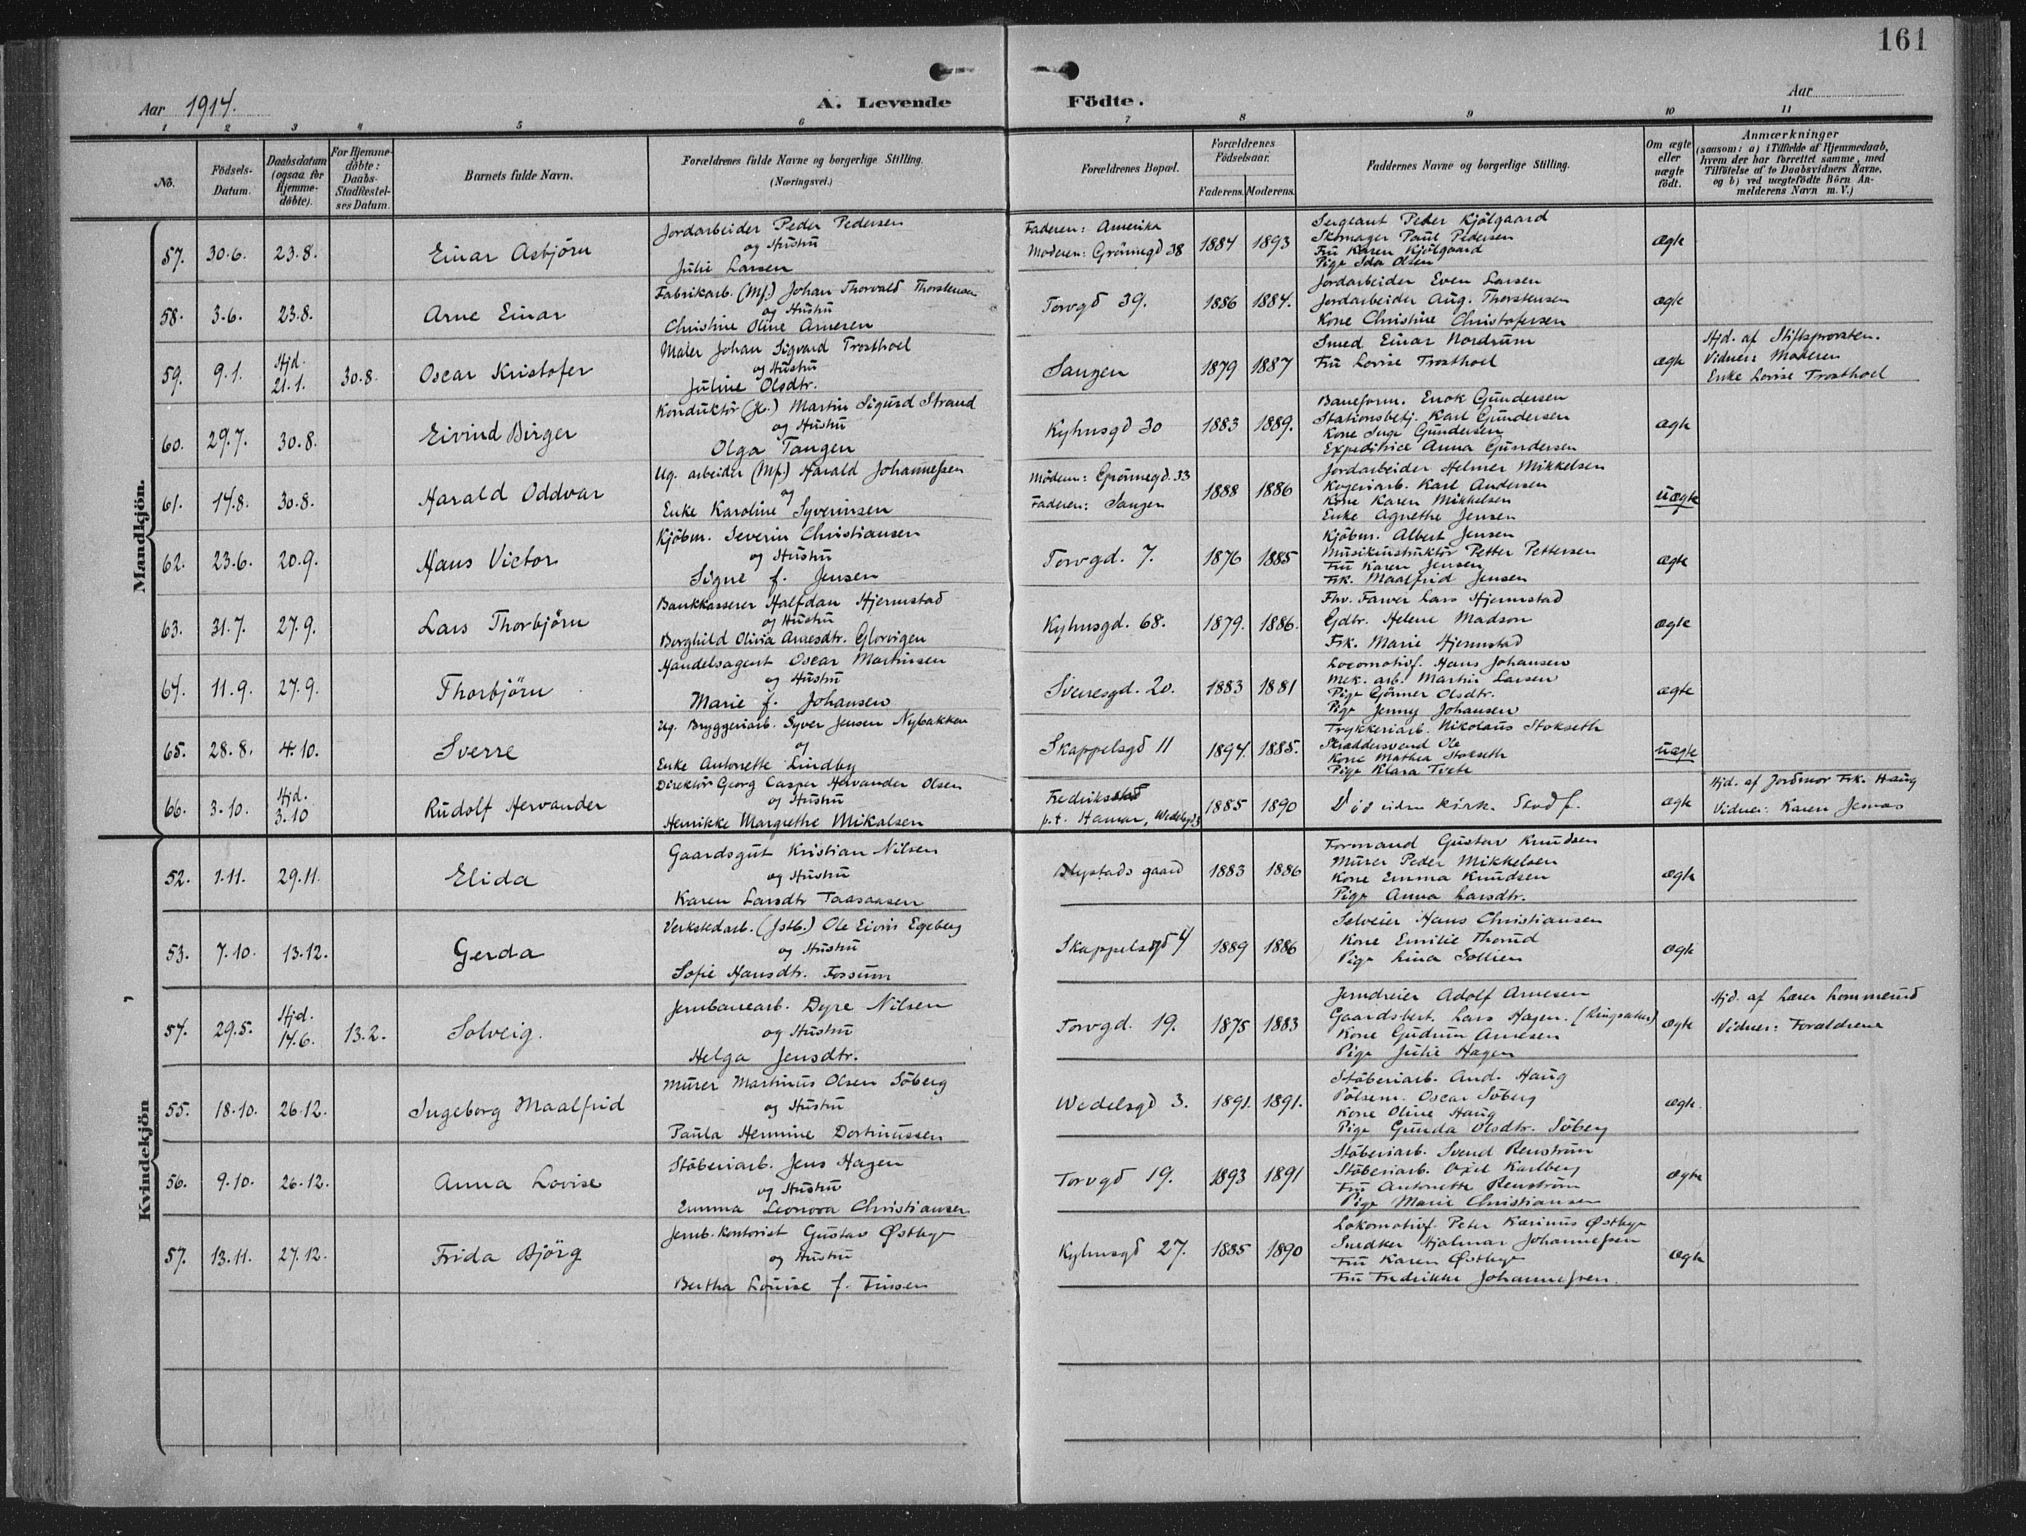 161
Aar 1914.
A. Levende Födte.
Aar
1 2 3 4 5 6 7 8 9 10 11
No.
Födsels-Datum.
Daabsdatum (ogsaa for Hjemmedöbte).
For Hjemmedöbte: Daabs-Stadfestelses Datum.
Barnets fulde Navn.
Forældrenes fulde Navne og borgerlige Stilling. (Næringsvei.)
Forældrenes Bopæl.
Forældrenes Födselsaar.
Faderens. Moderens.
Faddernes Navne og borgerlige Stilling.
Om ægte eller uægte födt.
Anmærkninger
(saasom: a) i Tilfælde af Hjemmedaab, hvem der har forrettet samme, med Tilföielse af to Daabsvidners Navne, og b) ved uægtefödte Börn Anmelderens Navn m. V.)
Mandkjön.
57. 30.6. 23.8. Einar Asbjörn
Jordarbeider Peder Pedersen
og Hustru
Julie Larsen
Faderen: Amerika
Moderen: Grönnegd 38
1884 1893
Sergeant Peder Kjölgaard
Skomager Paul Pedersen
Fru Karen Kjölgaard
Pige Ida Olsen
ægte
58. 3.6. 23.8. Arne Einar
Fabrikarb. (Mf.) Johan Thorvald Thorstensen
og Hustru
Christine Oline Arnesen
Torvgd 39. 1886 1884.
Jordarbeider Even Larsen
Jordarbeider Aug. Thorstensen
Kone Christine Christofersen
ægte
59. 9.1. Hjd. 21.1. 30.8. Oscar Kristofer
Maler Johan Sigvard Trosthoel
og Hustru
Juline Olsdtr.
Sangen 1879 1887
Smed Einar Nordrum
Fru Lovise Trosthoel
ægte
Hjd. af Stiftsprovsten.
Vidner: Moderen
Enke Lovise Trosthoel
60. 29.7. 30.8. Eivind Birger
Konduktör (Jb.) Martin Sigurd Strand
og Hustru
Olga Tangen
Kyhnsgd 30 1883 1889.
Baneform. Enok Gundersen
Stationsbetj. Karl Gundersen
Kone Inga Gundersen
Expeditrice Anna Gundersen
ægte
61. 14.8. 30.8. Harald Oddvar
Ug. arbeider (Mf.) Harald Johannessen
og
Enke Karoline Syverinsen
Moderen: Grönnegd. 33
Faderen: Sangen
1888 1886
Jordarbeider Helmer Mikkelsen
Karl Andersen
Kone Karen Mikkelsen
Enke Agnethe Jensen
uægte
62. 23.6. 20.9. Hans Victor
Kjöbm. Severin Christiansen
og Hustru
Signe f. Jensen
Torvgd. 7. 1876 1885
Kjöbm. Albert Jensen
Musikinstruktör Petter Pettersen
Fru Karen Jensen
Frk. Maalfrid Jensen
ægte
63. 31.7. 27.9. Lars Thorbjörn
Bankkasserer Halfdan Hjermstad
og Hustru
Borghild Olivia Arnesdtr. Glorvigen
Kyhnsgd. 68. 1879. 1886.
Fhv. Farver Lars Hjermstad
Gdtr. Helene Madson
Frk. Marie Hjermstad
ægte
64. 11.9. 27.9. Thorbjörn
Handelsagent Oscar Martinsen
og Hustru
Marie f. Johansen
Sverresgd. 20. 1883 1881
Locomotivf. Hans Johansen
Mek. arb. Martin Larsen
Pige Olsdtr.
Pige Jenny Johansen
ægte
65. 28.8. 4.10. Sverre
Ug. Bryggeriarb. Syver Jensen Nybakken
og
Enke Antonette Lindby
Skappelsgd 11 1894. 1885.
Trykkeriarb. Nikolaus Stokseth
Skræddersvend Ole
Kone Mathea Stokseth
Pige Klara Tvete
uægte
66. 3.10. Hjd. 3.10 Rudolf Hervander
Direktör Georg Casper Hervander Olsen
og Hustru
Henrikke Margrethe Mikalsen
Fredriksstad
p.t. Hamar, Wedelsgd 3
1885 1890
Död uden kirk. Stadf.
ægte
Hjd. af Jordmor Frk. Haug
Vidner: Karen
Kvindekjön
52. 1.11. 29.11. Elida
Gaardsgut Kristian Nilsen
og Hustru
Karen Larsdtr Taasaasen
gaard 1883 1886
Formand Gustav Knudsen
Murer Peder Mikkelsen
Kone Emma Knudsen
Pige Anna Larsdtr.
ægte
53. 7.10. 13.12. Gerda
Verkstedarb. (Jstb.) Ole Eivin Egeberg
og Hustru
Sofie Hansdtr. Fossum
Skappelsgd 4 1889 1886
Selveier Hans Christiansen
Kone Emilie Thorud
Pige Lina Sollien
ægte
54. 29.5. Hjd. 14.6. 13.2. Solveig.
Jernbanearb. Dyre Nilsen
og Hustru
Helga Jensdtr.
Torvgd. 19. 1875 1883
Jerndreier Adolf Arnesen
Gaardsbest. Lars Hagen. (Ringsaker)
Kone Gudrun Arnesen
Pige Julie Hagen
ægte
Hjd. af Lærer Lommerud
Vidner: Forældrene
55. 18.10. 26.12. Ingeborg Maalfrid
Murer Martinus Olsen Söberg
og Hustru
Paula Hermine Dortinussen
Wedelsgd 3. 1891. 1891.
Stöberiarb. And. Haug
Pölsem. Oscar Söberg
Kone Oline Haug
Pige Gunda Olsdtr. Söberg
ægte.
56. 9.10. 26.12. Anna Lovise
Stöberiarb. Jens Hagen
og Hustru
Emma Leonora Christiansen
Torvgd 19. 1893 1891
Stöberiarb. Svend Renström
Stöberiarb. Axel Karlberg
Fru Antonette Renström
Pige Marie Christiansen
ægte
57. 13.11. 27.12. Frida Björg
Jernb. Kontorist Gustav Østbye
og Hustru
Bertha Louise f. Finsen
Kyhnsgd 27. 1885 1890
Lokomotivf. Peter Karinus Østbye
Snedker Hjalmar Johannessen
Fru Karen Østbye
Fru Fredrikke Johannessen.
ægte